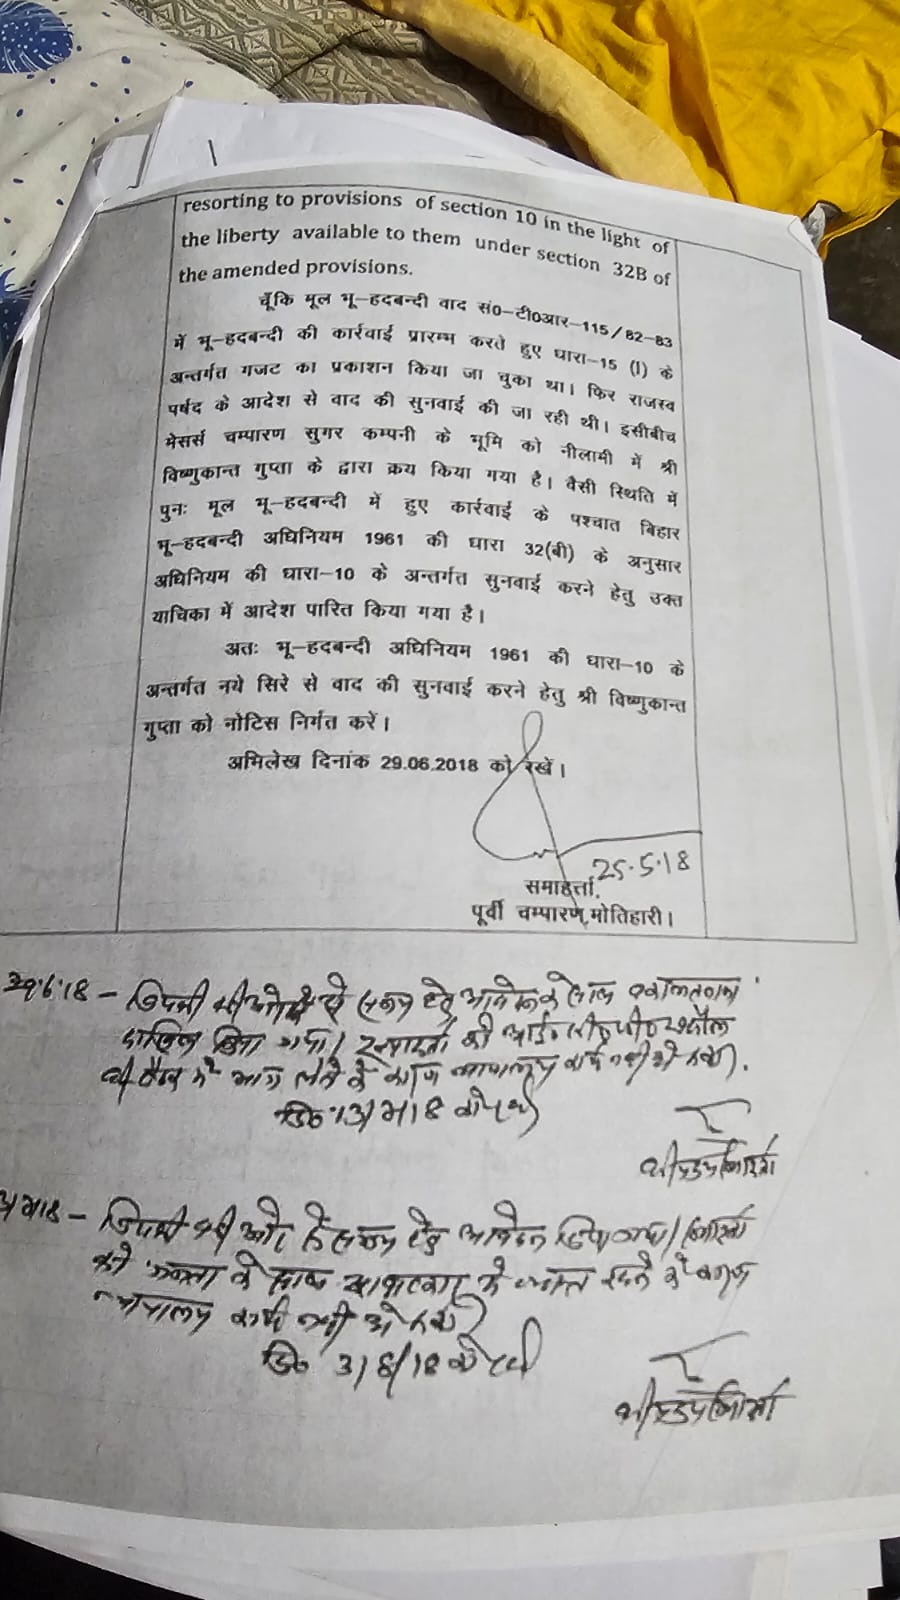 resorting to provisions of section 10 in the light of
the liberty available to them under section 32B of
the amended provisions.
चूँकि मूल भू–हदबन्दी वाद सं0–टी0आर–115/82–83
में भू–हदबन्दी की कार्रवाई प्रारम्भ करते हुए धारा–15 (I) के
अन्तर्गत गजट का प्रकाशन किया जा चुका था। फिर राजस्व
पर्षद के आदेश से वाद की सुनवाई की जा रही थी। इसीबीच
मेसर्स चम्पारण सुगर कम्पनी के भूमि को नीलामी में श्री
विष्णुकान्त गुप्ता के द्वारा क्रय किया गया है। वैसी स्थिति में
पुनः मूल भू–हदबन्दी में हुए कार्रवाई के पश्चात बिहार
भू–हदबन्दी अधिनियम 1961 की धारा 32(बी) के अनुसार
अधिनियम की धारा–10 के अन्तर्गत सुनवाई करने हेतु उक्त
याचिका में आदेश पारित किया गया है।
अतः भू–हदबन्दी अधिनियम 1961 की धारा–10 के
अन्तर्गत नये सिरे से वाद की सुनवाई करने हेतु श्री विष्णुकान्त
गुप्ता को नोटिस निर्गत करें।
अभिलेख दिनांक 29.06.2018 को रखें।
25.5.18
समाहर्त्ता,
पूर्वी चम्पारण,मोतिहारी।
29.6.18 – विपक्षी की ओर से समय हेतु आवेदन के साथ वकालतनामा
दाखिल किया गया। समाहर्ता की
बैठक में भाग लेने के कारण न्यायालय कार्य नहीं हो सका।
को रखें
विपक्षी की ओर से समय हेतु आवेदन दिया गया।
के साथ के कारण
न्यायालय कार्य नहीं हो सका।
दि० 3/8/18 को रखें